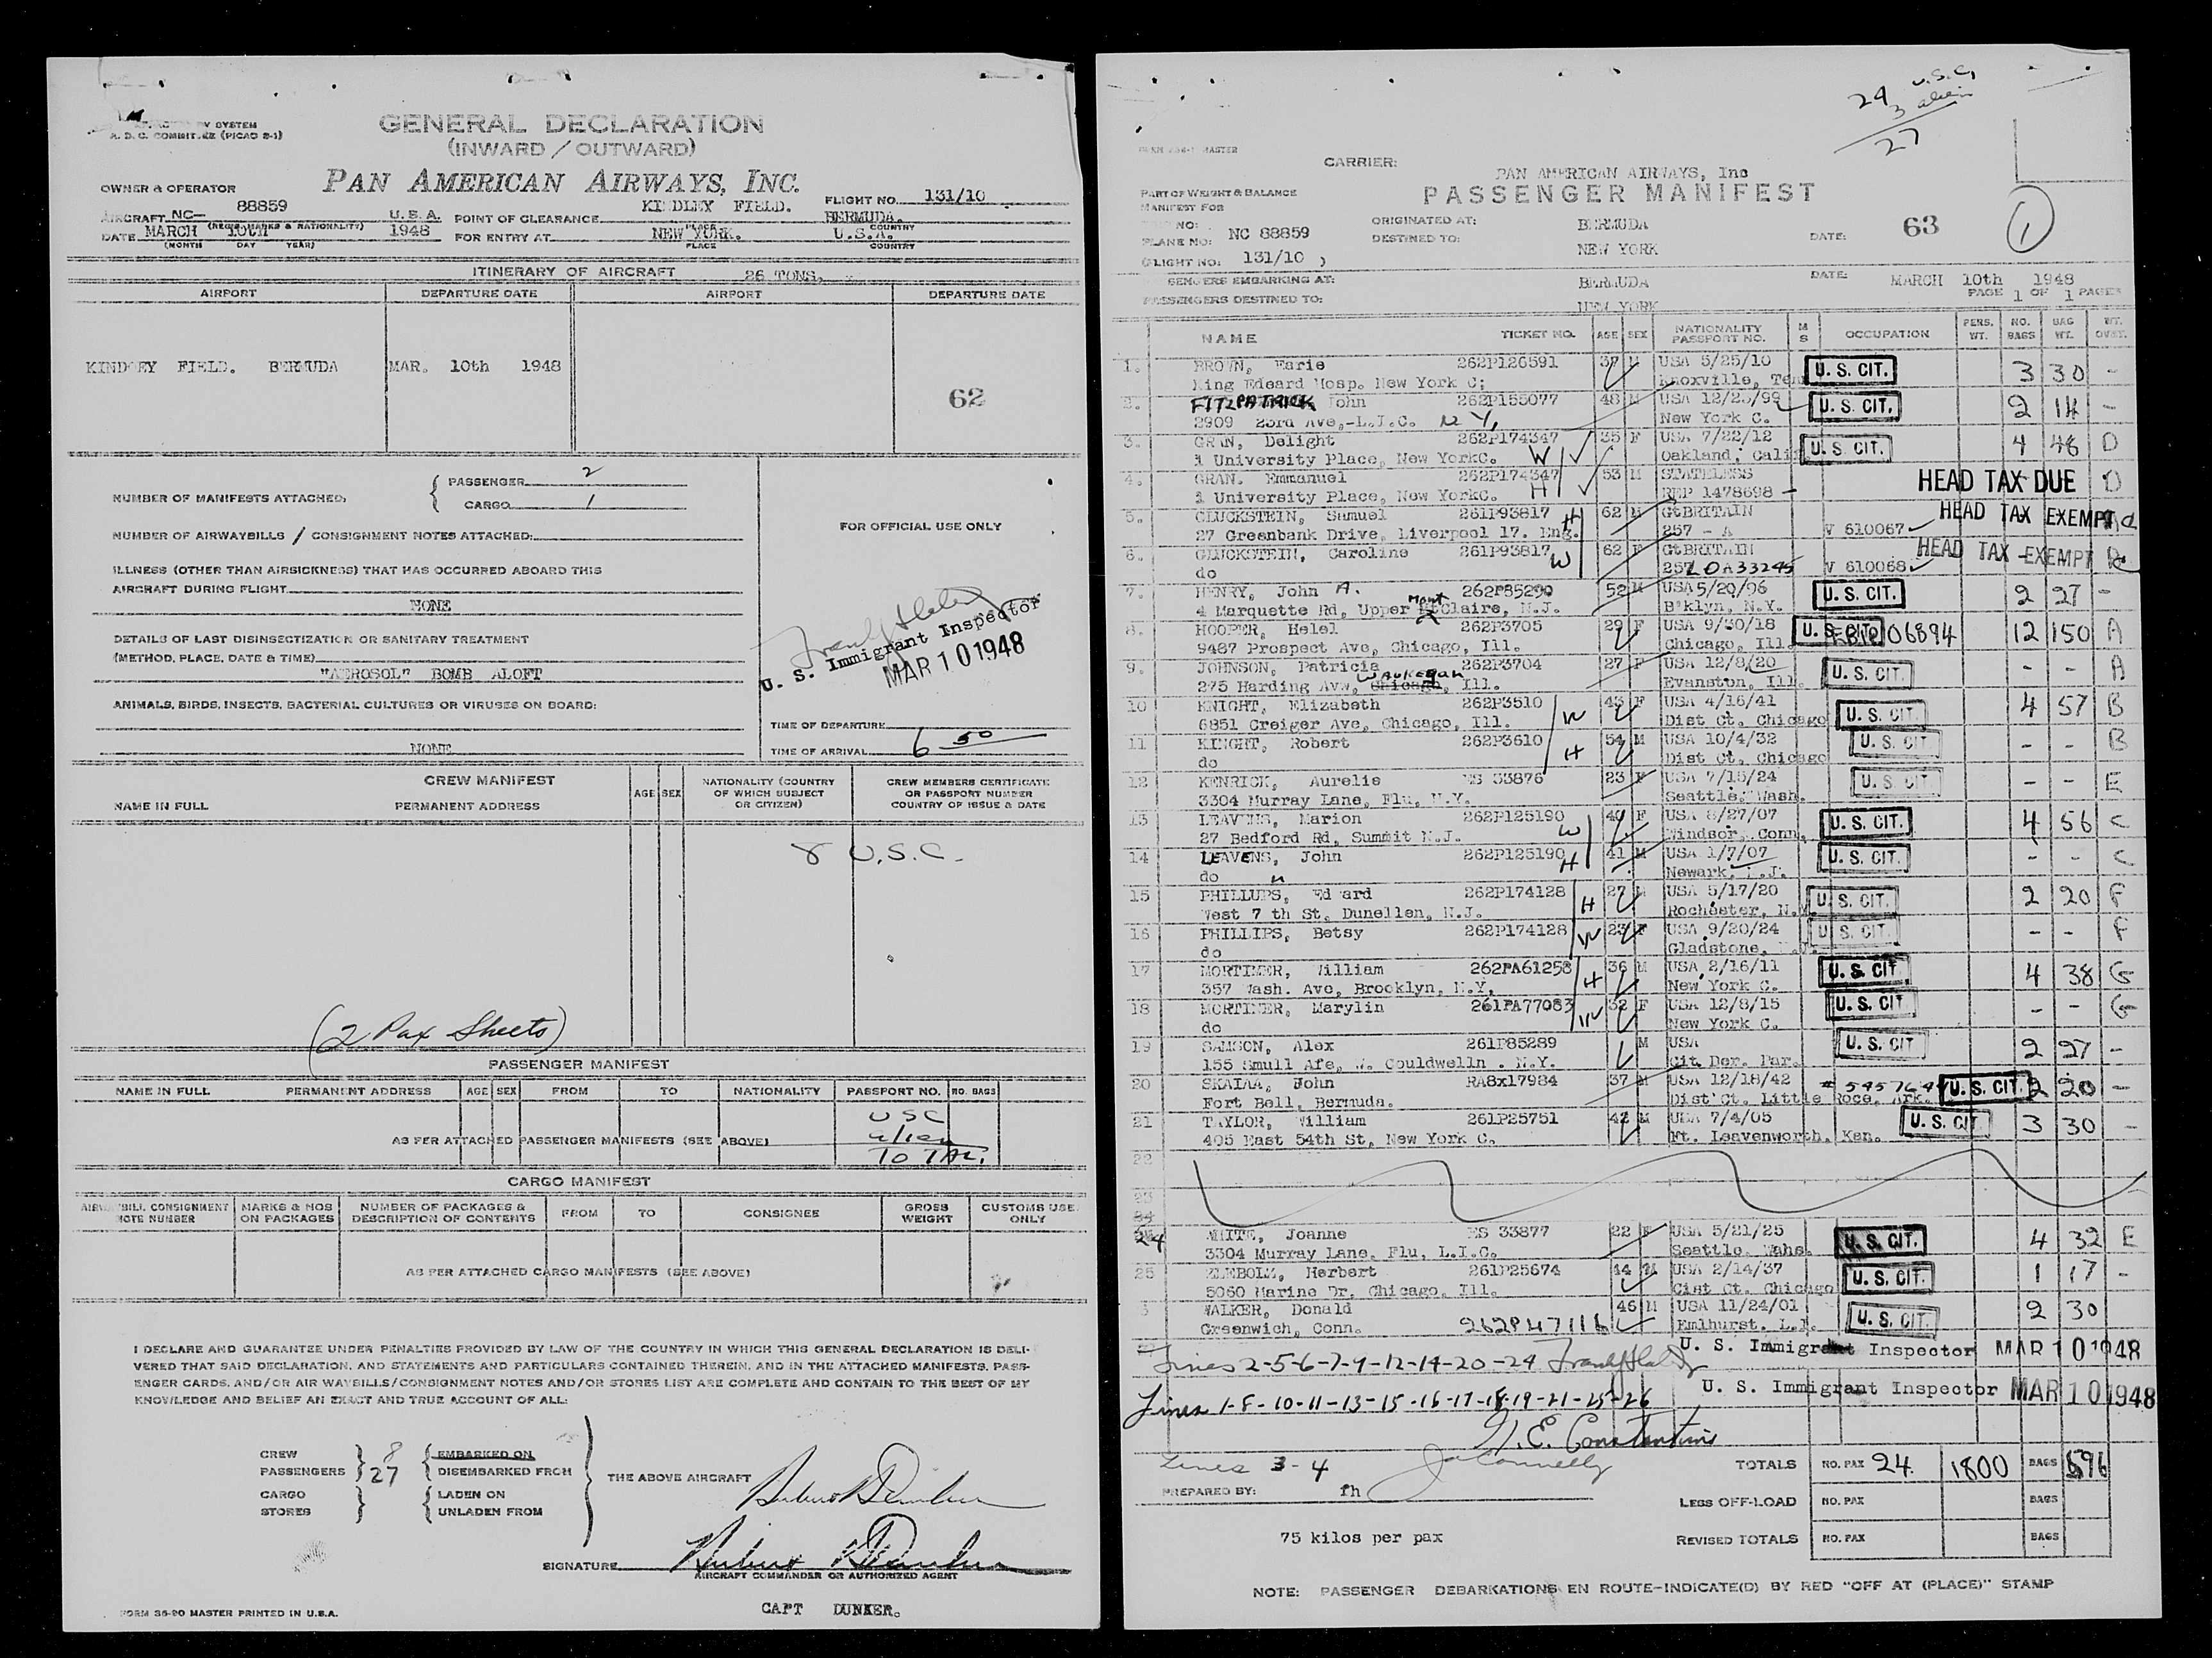 A. D. C. COMMITTEE (PICAO S-1)
GENERAL DECLARATION
(INWARD / OUTWARD)
OWNER & OPERATOR
PAN AMERICAN AIRWAYS, INC.
AIRCRAFT NC- 88859 U. S. A.
(REGIS. MARKS & NATIONALITY)
POINT OF CLEARANCE KINDLEY FIELD. BERMUDA.
PLACE COUNTRY
FLIGHT NO. 131/10
DATE MARCH 10TH 1948
(MONTH DAY YEAR)
FOR ENTRY AT NEW YORK. U.S.A.
PLACE COUNTRY
ITINERARY OF AIRCRAFT 26 TONS.
AIRPORT DEPARTURE DATE AIRPORT DEPARTURE DATE
KINDLEY FIELD. BERMUDA MAR. 10th 1948
62
NUMBER OF MANIFESTS ATTACHED:
PASSENGER 2
CARGO 1
NUMBER OF AIRWAYBILLS / CONSIGNMENT NOTES ATTACHED:
ILLNESS (OTHER THAN AIRSICKNESS) THAT HAS OCCURRED ABOARD THIS
AIRCRAFT DURING FLIGHT
NONE
DETAILS OF LAST DISINSECTIZATION OR SANITARY TREATMENT
(METHOD, PLACE, DATE & TIME)
"AEROSOL" BOMB ALOFT
ANIMALS, BIRDS, INSECTS, BACTERIAL CULTURES OR VIRUSES ON BOARD:
NONE
FOR OFFICIAL USE ONLY
U. S. Immigrant Inspector
MAR 10 1948
TIME OF DEPARTURE
TIME OF ARRIVAL 6 50
CREW MANIFEST
NAME IN FULL PERMANENT ADDRESS
AGE SEX
NATIONALITY (COUNTRY
OF WHICH SUBJECT
OR CITIZEN)
CREW MEMBERS CERTIFICATE
OR PASSPORT NUMBER
COUNTRY OF ISSUE & DATE
8 U.S.C.
(2 Pax Sheets)
PASSENGER MANIFEST
NAME IN FULL PERMANENT ADDRESS AGE SEX FROM TO NATIONALITY PASSPORT NO. NO. BAGS
USC
alien
TOTAL.
AS PER ATTACHED PASSENGER MANIFESTS (SEE ABOVE)
CARGO MANIFEST
AIRWAYBILL CONSIGNMENT
NOTE NUMBER
MARKS & NOS
ON PACKAGES
NUMBER OF PACKAGES &
DESCRIPTION OF CONTENTS
FROM TO CONSIGNEE
GROSS
WEIGHT
CUSTOMS USE
ONLY
AS PER ATTACHED CARGO MANIFESTS (SEE ABOVE)
I DECLARE AND GUARANTEE UNDER PENALTIES PROVIDED BY LAW OF THE COUNTRY IN WHICH THIS GENERAL DECLARATION IS DELI-
VERED THAT SAID DECLARATION, AND STATEMENTS AND PARTICULARS CONTAINED THEREIN, AND IN THE ATTACHED MANIFESTS, PASS-
ENGER CARDS, AND/OR AIR WAYBILLS/CONSIGNMENT NOTES AND/OR STORES LIST ARE COMPLETE AND CONTAIN TO THE BEST OF MY
KNOWLEDGE AND BELIEF AN EXACT AND TRUE ACCOUNT OF ALL:
CREW 8 EMBARKED ON
PASSENGERS 27 DISEMBARKED FROM
CARGO LADEN ON
STORES UNLADEN FROM
THE ABOVE AIRCRAFT
SIGNATURE
AIRCRAFT COMMANDER OR AUTHORIZED AGENT
CAPT DUNKER.
FORM 36-20 MASTER PRINTED IN U.S.A.
24 U.S.C.
3 alien
27
CARRIER:
PAN AMERICAN AIRWAYS, Inc
PASSENGER MANIFEST
PART OF WEIGHT & BALANCE
MANIFEST FOR
NO:
PLANE NO: NC 88859
(FLIGHT NO: 131/10 )
ORIGINATED AT: BERMUDA
DESTINED TO: NEW YORK
DATE: 63
1
PASSENGERS EMBARKING AT: BERMUDA
PASSENGERS DESTINED TO: NEW YORK
DATE: MARCH 10th 1948
PAGE 1 OF 1 PAGES
NAME TICKET NO. AGE SEX NATIONALITY PASSPORT NO. M S OCCUPATION PERS. WT. NO. BAGS BAG WT. WT. OVST.
1. BROWN, Earie 262P126591 37 M USA 5/25/10 U. S. CIT. 3 30 -
King Edeard Hosp. New York C; Knoxville, Ten
2. FITZPATRICK John 262P155077 48 M USA 12/25/99 U. S. CIT. 2 14 -
2909 23rd Ave,-L.I.C. N Y, New York C.
3. GRAN, Delight 262P174347 35 F USA 7/22/12 U. S. CIT. 4 46 D
1 University Place, New YorkC. W Oakland, Calif
4. GRAN. Emmanuel 262P174347 53 M STATELESS HEAD TAX DUE D
1 University Place, New YorkC. H REP 1478698 -
5. GLUCKSTEIN, Samuel 261P93817 H 62 M GtBRITAIN HEAD TAX EXEMPT
27 Greenbank Drive, Liverpool 17. Eng. 257 - A V 610067
6. GLUCKSTEIN, Caroline 261P93817 W 62 F GtBRITAIN HEAD TAX EXEMPT
do 257 LOA33245 V 610068
7. HENRY, John A. 262P85290 52 M USA 5/20/96 U. S. CIT. 2 27 -
4 Marquette Rd, Upper Mont Claire, N.J. B'klyn, N.Y.
8. HOOPER, Helel 262P3705 29 F USA 9/30/18 U. S. CIT. 06894 12 150 A
9487 Prospect Ave, Chicago, Ill. Chicago, Ill.
9. JOHNSON, Patricia 262P3704 27 F USA 12/8/20 U. S. CIT. - - A
275 Harding Avw, Waukegan Chicago, Ill. Evanston, Ill.
10 KNIGHT, Elizabeth 262P3510 W 43 F USA 4/16/41 U. S. CIT. 4 57 B
6851 Creiger Ave, Chicago, Ill. Dist Ct. Chicago
11 KINGHT, Robert 262P3610 H 54 M USA 10/4/32 U. S. CIT. - - B
do Dist Ct. Chicago
12 KENRICK, Aurelie ES 33876 23 F USA 7/15/24 U. S. CIT. - - E
3304 Murray Lane, Flu, N.Y. Seattle, Wash.
13 LEAVENS, Marion 262P125190 W 40 F USA 8/27/07 U. S. CIT. 4 56 C
27 Bedford Rd, Summit N.J. Windsor, Conn.
14 LEAVENS, John 262P125190 H 41 M USA 1/7/07 U. S. CIT. - - C
do " Newark, N.J.
15 PHILLUPS, Edward 262P174128 H 27 M USA 5/17/20 U. S. CIT. 2 20 F
West 7 th St, Dunellen, N.J. Rochester, N.Y.
16 PHILLIPS, Betsy 262P174128 W 23 F USA 9/20/24 U. S. CIT. - - F
do Gladstone, N.J.
17 MORTIMER, William 262PA61258 H 36 M USA 2/16/11 U. S. CIT. 4 38 G
357 Wash. Ave, Brooklyn, N.Y. New York C.
18 MORTIMER, Marylin 261PA77083 W 32 F USA 12/8/15 U. S. CIT. - - G
do New York C.
19 SAMSON, Alex 261P85289 M USA U. S. CIT 2 27 -
155 Smull Afe, W. Couldwelln . N.Y. Cit. Der. Par.
20 SKAIAA, John RA8x17984 37 M USA 12/18/42 U. S. CIT. 2 20 -
Fort Bell, Bermuda. Dist Ct. Little Roce, Ark.
21 TAYLOR, William 261P25751 42 M USA 7/4/05 U. S. CIT 3 30 -
405 East 54th St, New York C. Ft. Leavenworth, Kan.
22
23
24 WHITE, Joanne ES 33877 22 F USA 5/21/25 U. S. CIT. 4 32 E
3304 Murray Lane, Flu, L.I.C. Seattle. Wahs.
25 Herbert 261P25674 44 M USA 2/14/37 U. S. CIT. 1 17 -
5060 Marine Dr, Chicago, Ill. Cist Ct. Chicago
WALKER, Donald 46 M USA 11/24/01 U. S. CIT. 2 30
Greenwich, Conn. 262P47116 Emlhurst. L.I.
Lines 2-5-6-7-9-12-14-20-24 U. S. Immigrant Inspector MAR 10 1948
Lines 1-8-10-11-13-15-16-17-18-19-21-25-26 U. S. Immigrant Inspector MAR 10 1948
H. E. Constantine
Lines 3-4 J Connelly
PREPARED BY: fh
TOTALS NO. PAX 24 1800 BAGS 596
LESS OFF-LOAD NO. PAX BAGS
75 kilos per pax
REVISED TOTALS NO. PAX BAGS
NOTE: PASSENGER DEBARKATIONS EN ROUTE-INDICATE(D) BY RED "OFF AT (PLACE)" STAMP